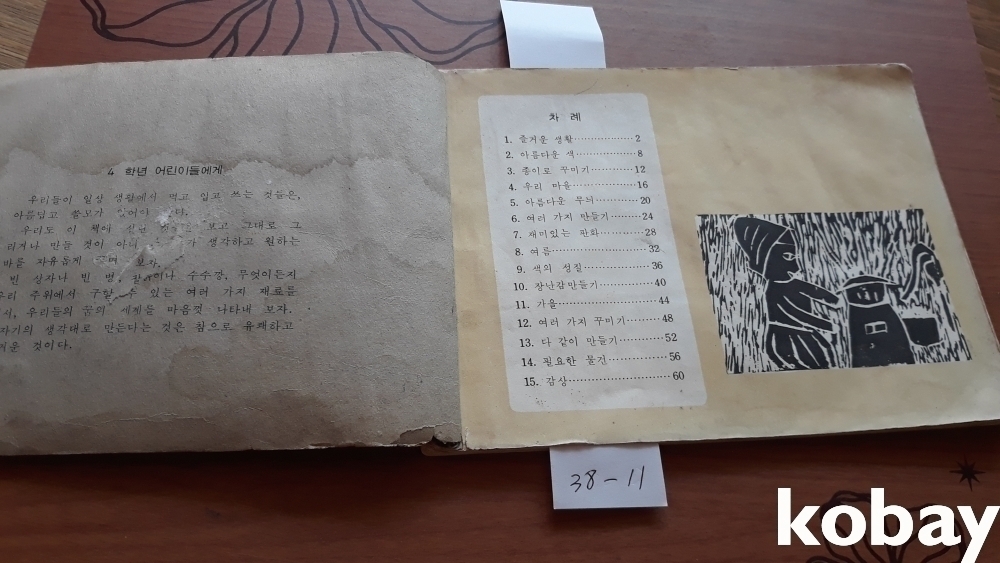 4 학년 어린이들에게
우리들이 일상 생활에서 먹고 입고 쓰는 것들은,
아름답고 쓸모가 있어야 한다.
우리도 이 책에 실린 보고 그대로 그
리거나 만들 것이 아니 가 생각하고 원하는
바를 자유롭게 보자.
빈 상자나 빈 병, 이나 수수깡, 무엇이든지
우리 주위에서 구할 수 있는 여러 가지 재료를
서, 우리들의 꿈의 세계를 마음껏 나타내 보자.
자기의 생각대로 만든다는 것은 참으로 유쾌하고
것이다.
차 례
1. 즐거운 생활 2
2. 아름다운 색 8
3. 종이로 꾸미기 12
4. 우리 마을 16
5. 아름다운 무늬 20
6. 여러 가지 만들기 24
7. 재미있는 판화 28
8. 여름 32
9. 색의 성질 36
10. 장난감만들기 40
11. 가을 44
12. 여러 가지 꾸미기 48
13. 다 같이 만들기 52
14. 필요한 물건 56
15. 감상 60
38-11
kobay